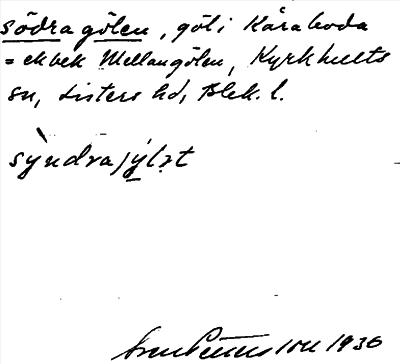 södragölen, göl i Kåraboda
= ekbek Mellangölen, Kyrkhults
sn, Listers hd, Blek. l.
sỳndrajy̱lət
1936